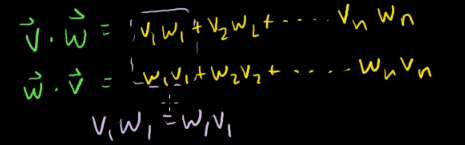 v⃗ · w⃗ = v₁w₁ + v₂w₂ + ...... vₙwₙ
w⃗ · v⃗ = w₁v₁ + w₂v₂ + ...... wₙvₙ
v₁w₁ = w₁v₁